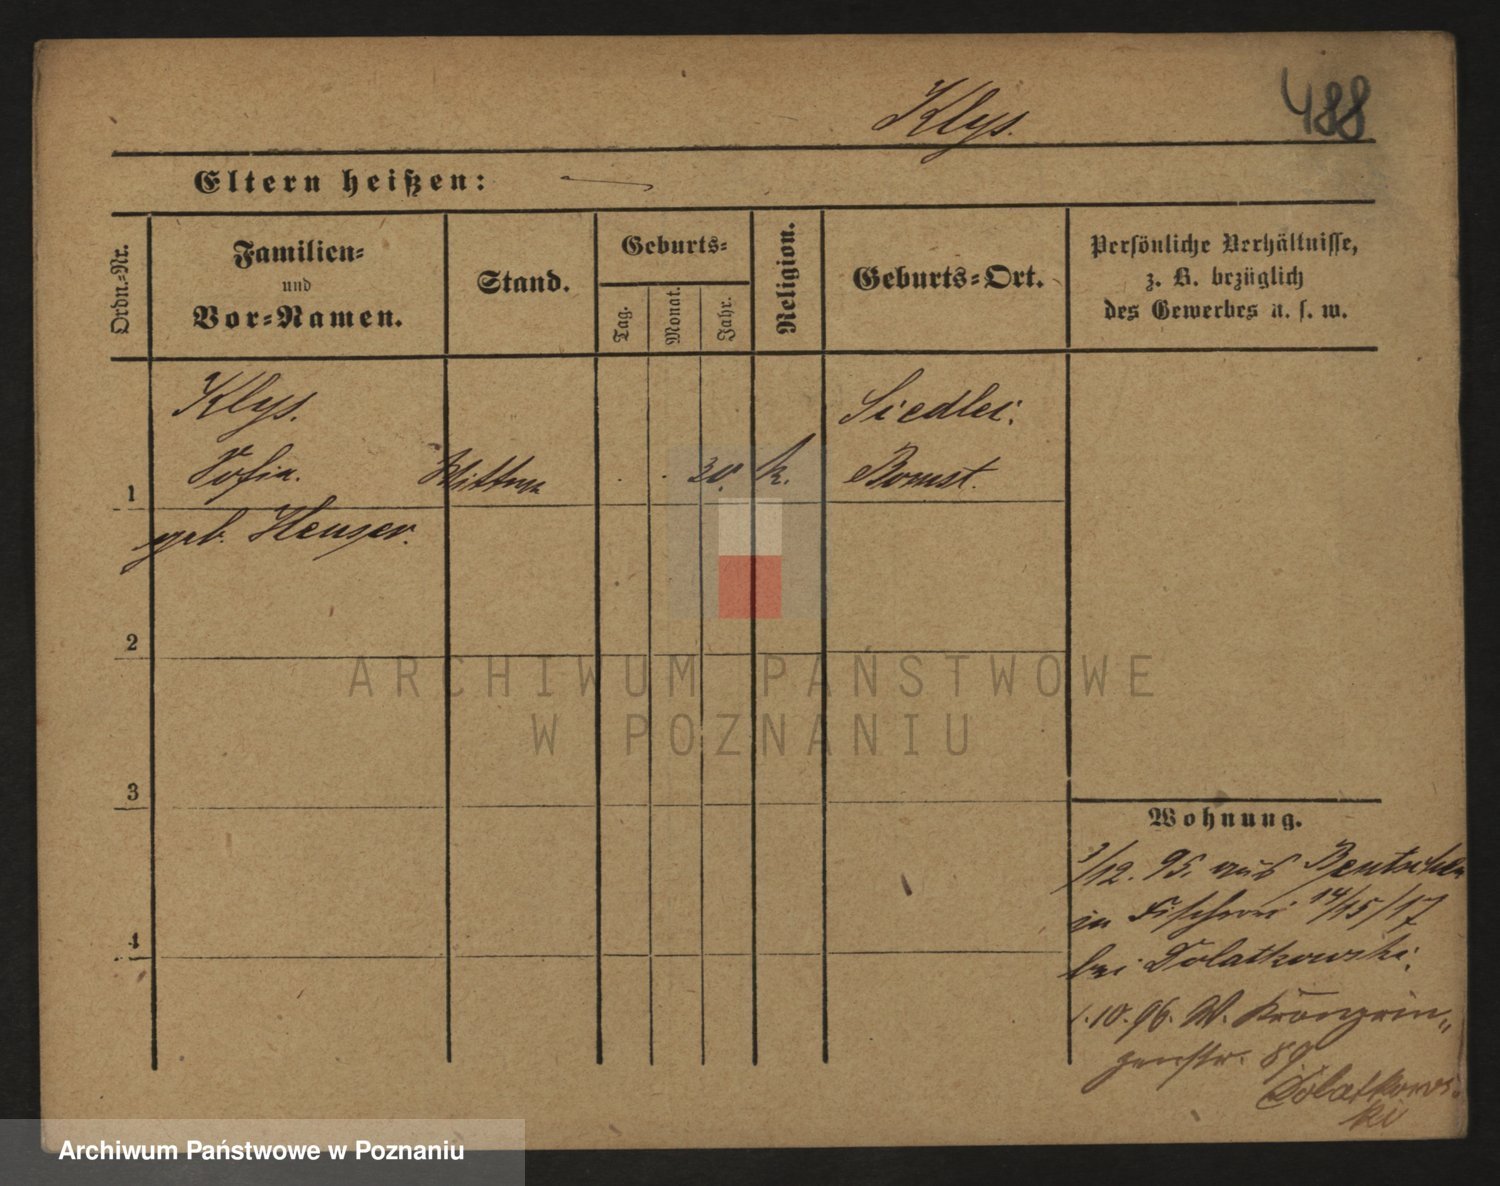 Klys.
488
Eltern heißen:
Ordn.-Nr.
Familien-
und
Vor-Namen.
Stand.
Geburts-
Tag.
Monat.
Jahr.
Religion.
Geburts-Ort.
Persönliche Verhältnisse,
z. B. bezüglich
des Gewerbes u. s. w.
Klys.
Sofia.
geb. Heuser.
Wittwe
20.
k.
Siedlei.
Bomst.
1
2
3
4
Wohnung.
3/12. 95. aus Bentschen
in Fischerei 14/15/17
bei Polatkowski.
1.10.96. W. Kronprin„
zenstr. 89
Polatkows.
ki
ARCHIWUM PAŃSTWOWE
W POZNANIU
Archiwum Państwowe w Poznaniu